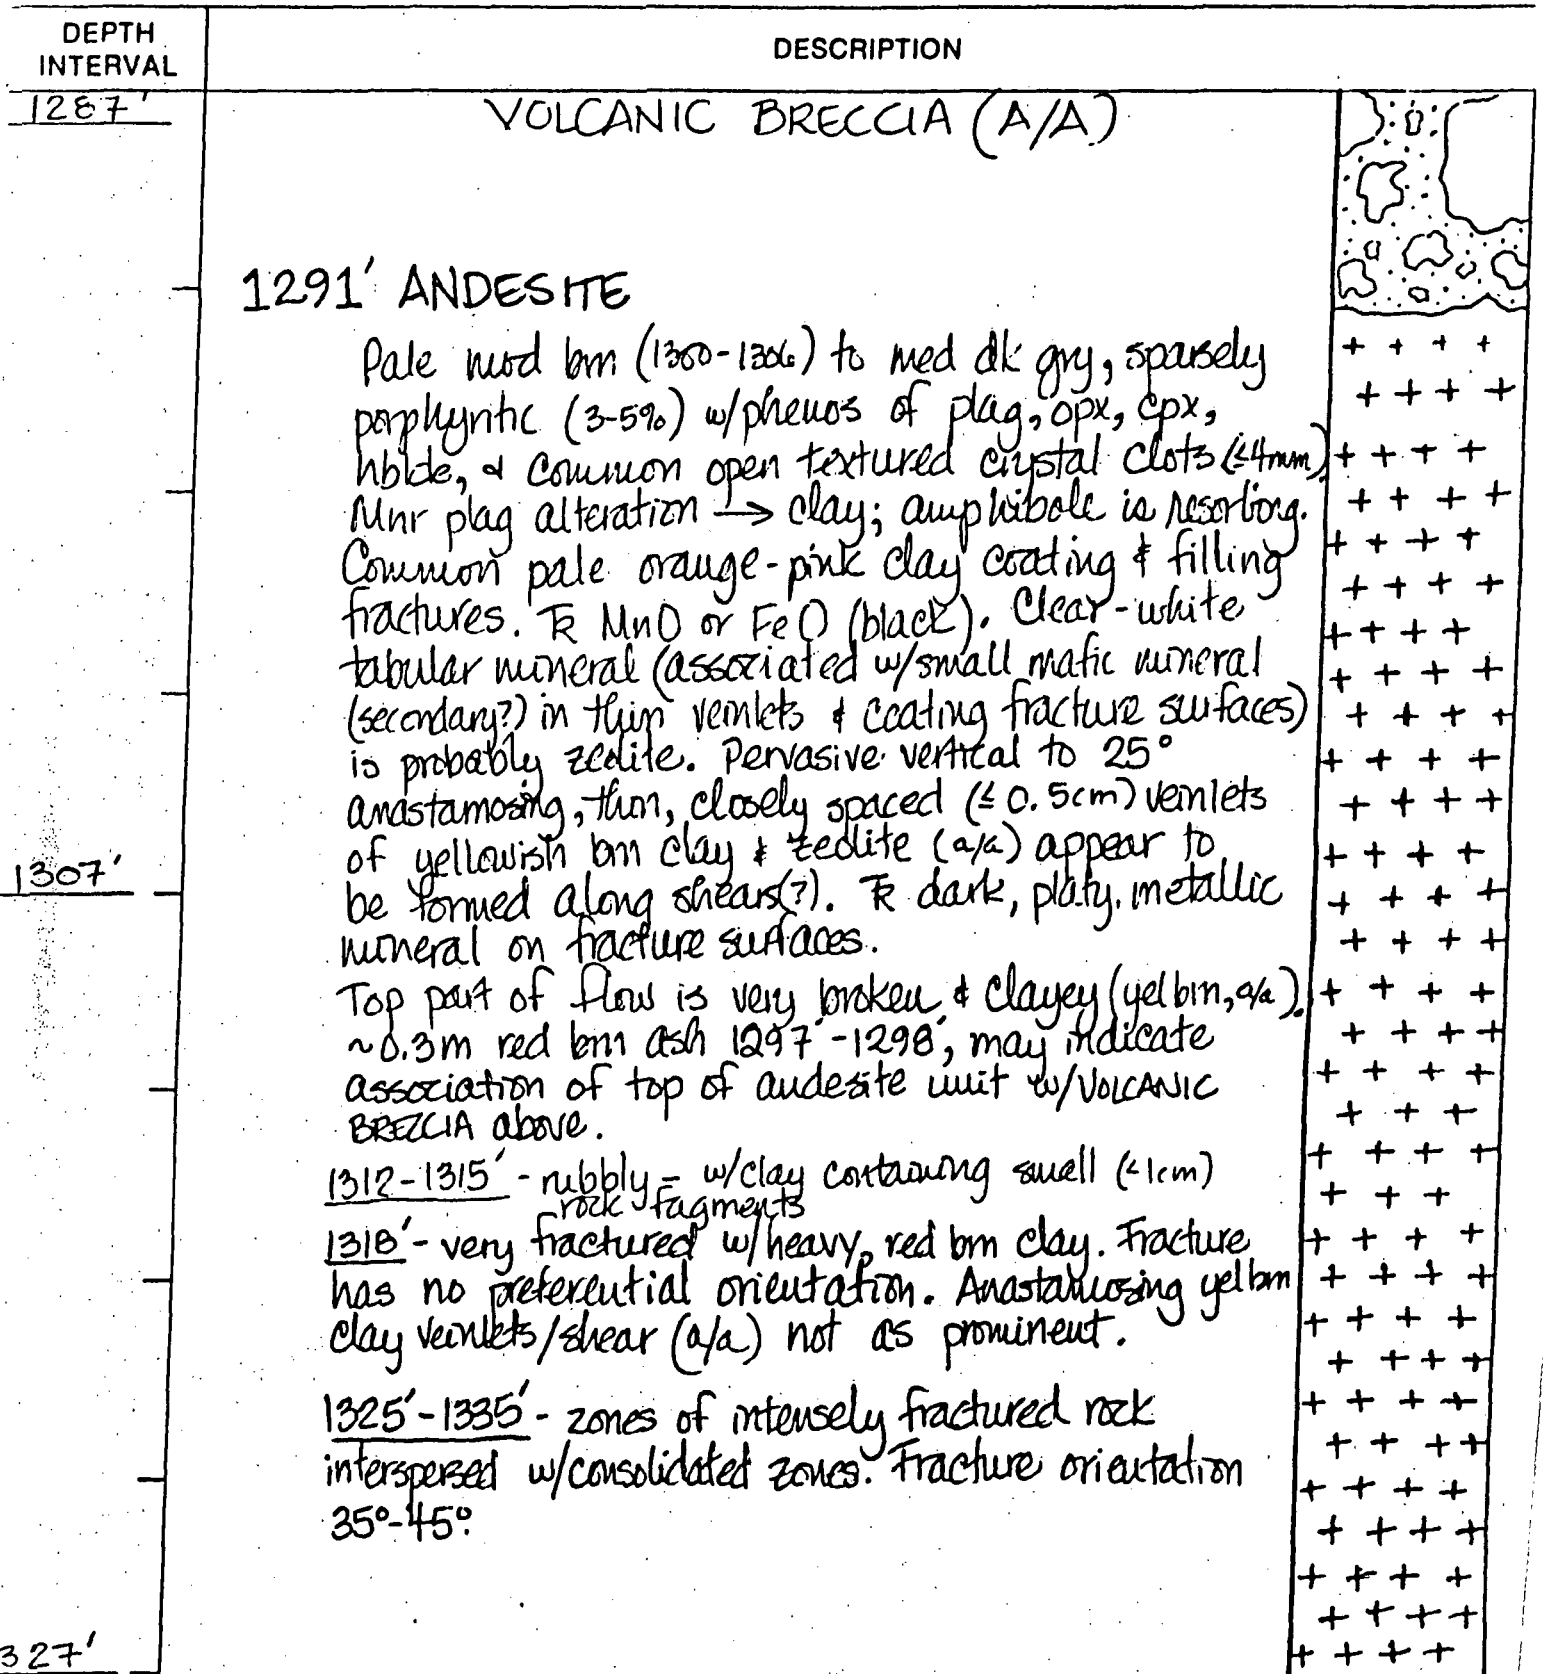 DEPTH
INTERVAL
DESCRIPTION
1287'
VOLCANIC BRECCIA (A/A)
1291' ANDESITE
Pale mod brn (1300-1306) to med dk gry, sparsely
porphyritic (3-5%) w/phenos of plag, opx, cpx,
hblde, & common open textured crystal clots (≤4mm).
Mnr plag alteration → clay; amphibole is resorbing.
Common pale orange-pink clay coating & filling
fractures. Tr MnO or FeO (black). Clear-white
tabular mineral (associated w/small mafic mineral
(secondary?) in thin veinlets & coating fracture surfaces)
is probably zeolite. Pervasive vertical to 25°
anastamosing, thin, closely spaced (≤ 0.5cm) veinlets
of yellowish brn clay & zeolite (a/a) appear to
1307'
be formed along shears(?). Tr dark, platy, metallic
mineral on fracture surfaces.
Top part of flow is very broken & clayey (yel brn, a/a).
~0.3m red brn ash 1297'-1298', may indicate
association of top of andesite unit w/VOLCANIC
BRECCIA above.
1312-1315' - rubbly - w/clay containing small (<1cm)
rock fagments
1318' - very fractured w/heavy, red brn clay. Fracture
has no preferential orientation. Anastamosing yel brn
clay veinlets/shear (a/a) not as prominent.
1325'-1335' - zones of intensely fractured rock
interspersed w/consolidated zones. Fracture orientation
35°-45°.
327'